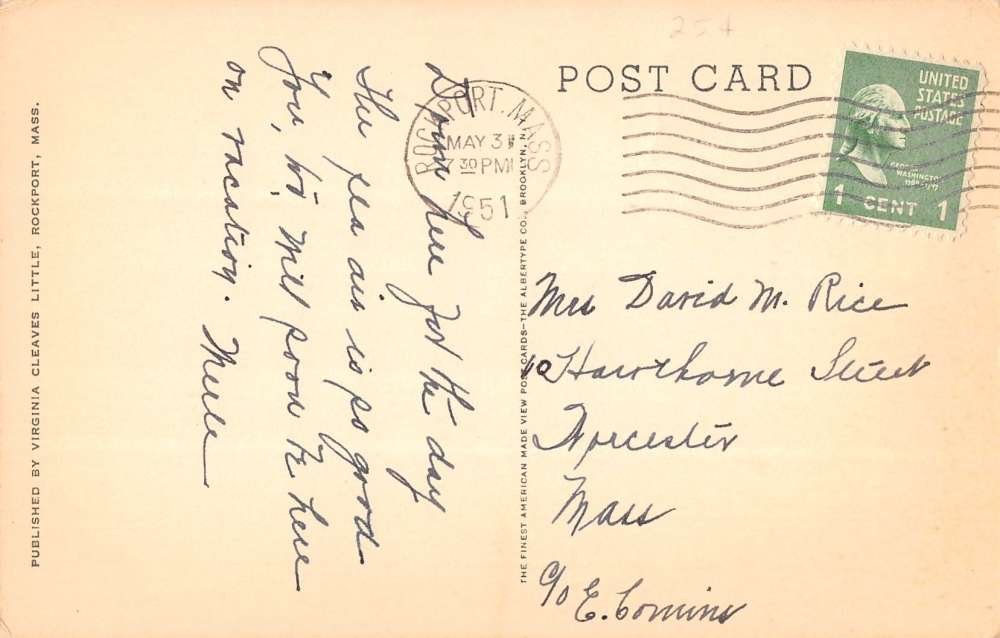 254
POST CARD
UNITED
STATES
POSTAGE
GEORGE
WASHINGTON
1 CENT 1
ROCKPORT. MASS
MAY 31
7 30 PM
1951
Down here for the day
The sea air is so good
You, Will soon be here
on vacation. Merle
Mrs David M. Rice
10 Hawthorne Street
Worcester
Mass
c/o E. Comins
PUBLISHED BY VIRGINIA CLEAVES LITTLE, ROCKPORT, MASS.
THE FINEST AMERICAN MADE VIEW POST CARDS—THE ALBERTYPE CO., BROOKLYN, N.